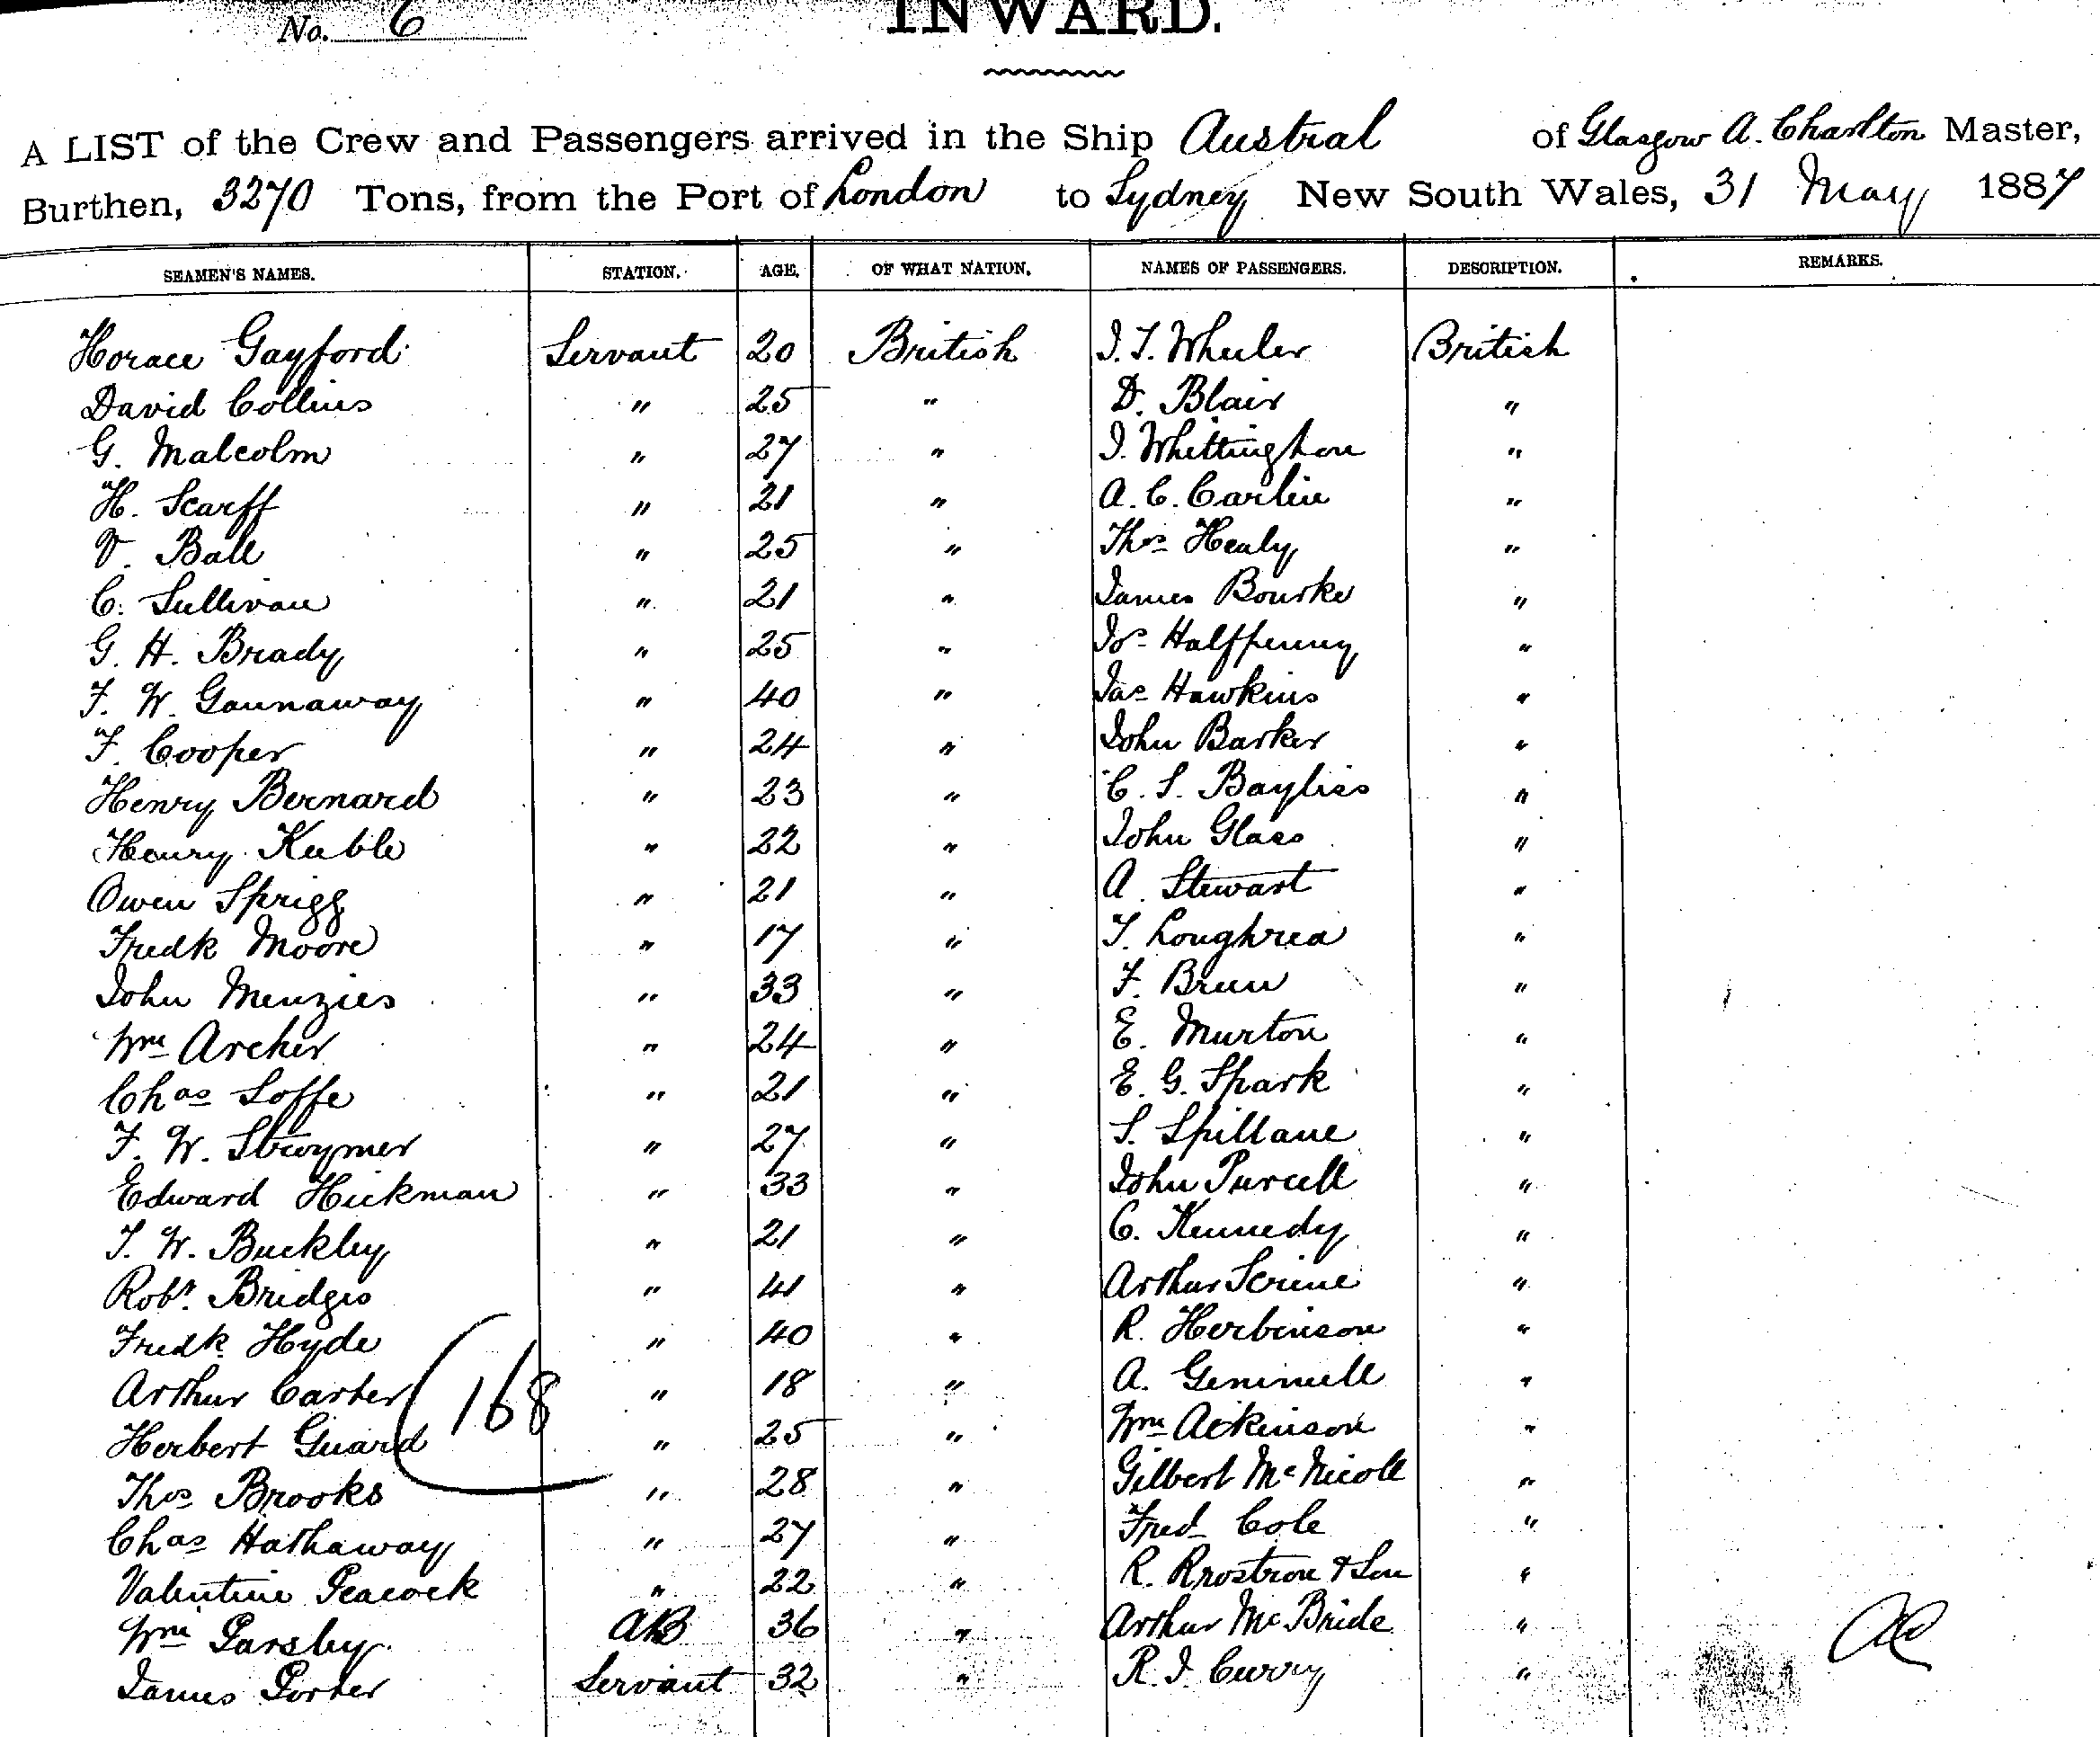 No. 6
INWARD.
A LIST of the Crew and Passengers arrived in the Ship Austral of Glasgow A. Charlton Master,
Burthen, 3270 Tons, from the Port of London to Sydney New South Wales, 31 May 1887
SEAMEN'S NAMES. STATION. AGE. OF WHAT NATION. NAMES OF PASSENGERS. DESCRIPTION. REMARKS.
Horace Gayford Servant 20 British J. T. Wheeler British
David Collins " 25 " D. Blair "
G. Malcolm " 27 " J. Whittingham "
H. Scarff " 21 " A. C. Carlin "
V. Ball " 25 " Thos Healy "
C. Sullivan " 21 " James Bourke "
G. H. Brady " 25 " Jos Halfpenny "
F. W. Gaunaway " 40 " Jas Hawkins "
F. Cooper " 24 " John Barker "
Henry Bernard " 23 " C. S. Bayliss "
Henry Keeble " 22 " John Glass "
Owen Sprigg " 21 " A. Stewart "
Fredk Moore " 17 " T. Loughrea "
John Menzies " 33 " F. "
Wm Archer " 24 " E. Murton "
Chas Soffe " 21 " E. G. Spark "
F. W. " 27 " S. Spillane "
Edward Hickman " 33 " John Purcell "
T. W. Buckley " 21 " C. Kennedy "
Robt. Bridges " 41 " Arthur "
Fredk Hyde " 40 " R. Herbinson "
Arthur Carter " 18 " A. Gemmell "
(168
Herbert Guard " 25 " Wm "
Thos Brooks " 28 " Gilbert McNicoll "
Chas Hathaway " 27 " Fred Cole "
Valentine Peacock " 22 " R. & Son "
Wm Parsley AB 36 " Arthur McBride "
James Porter Servant 32 " R. J. Curry "